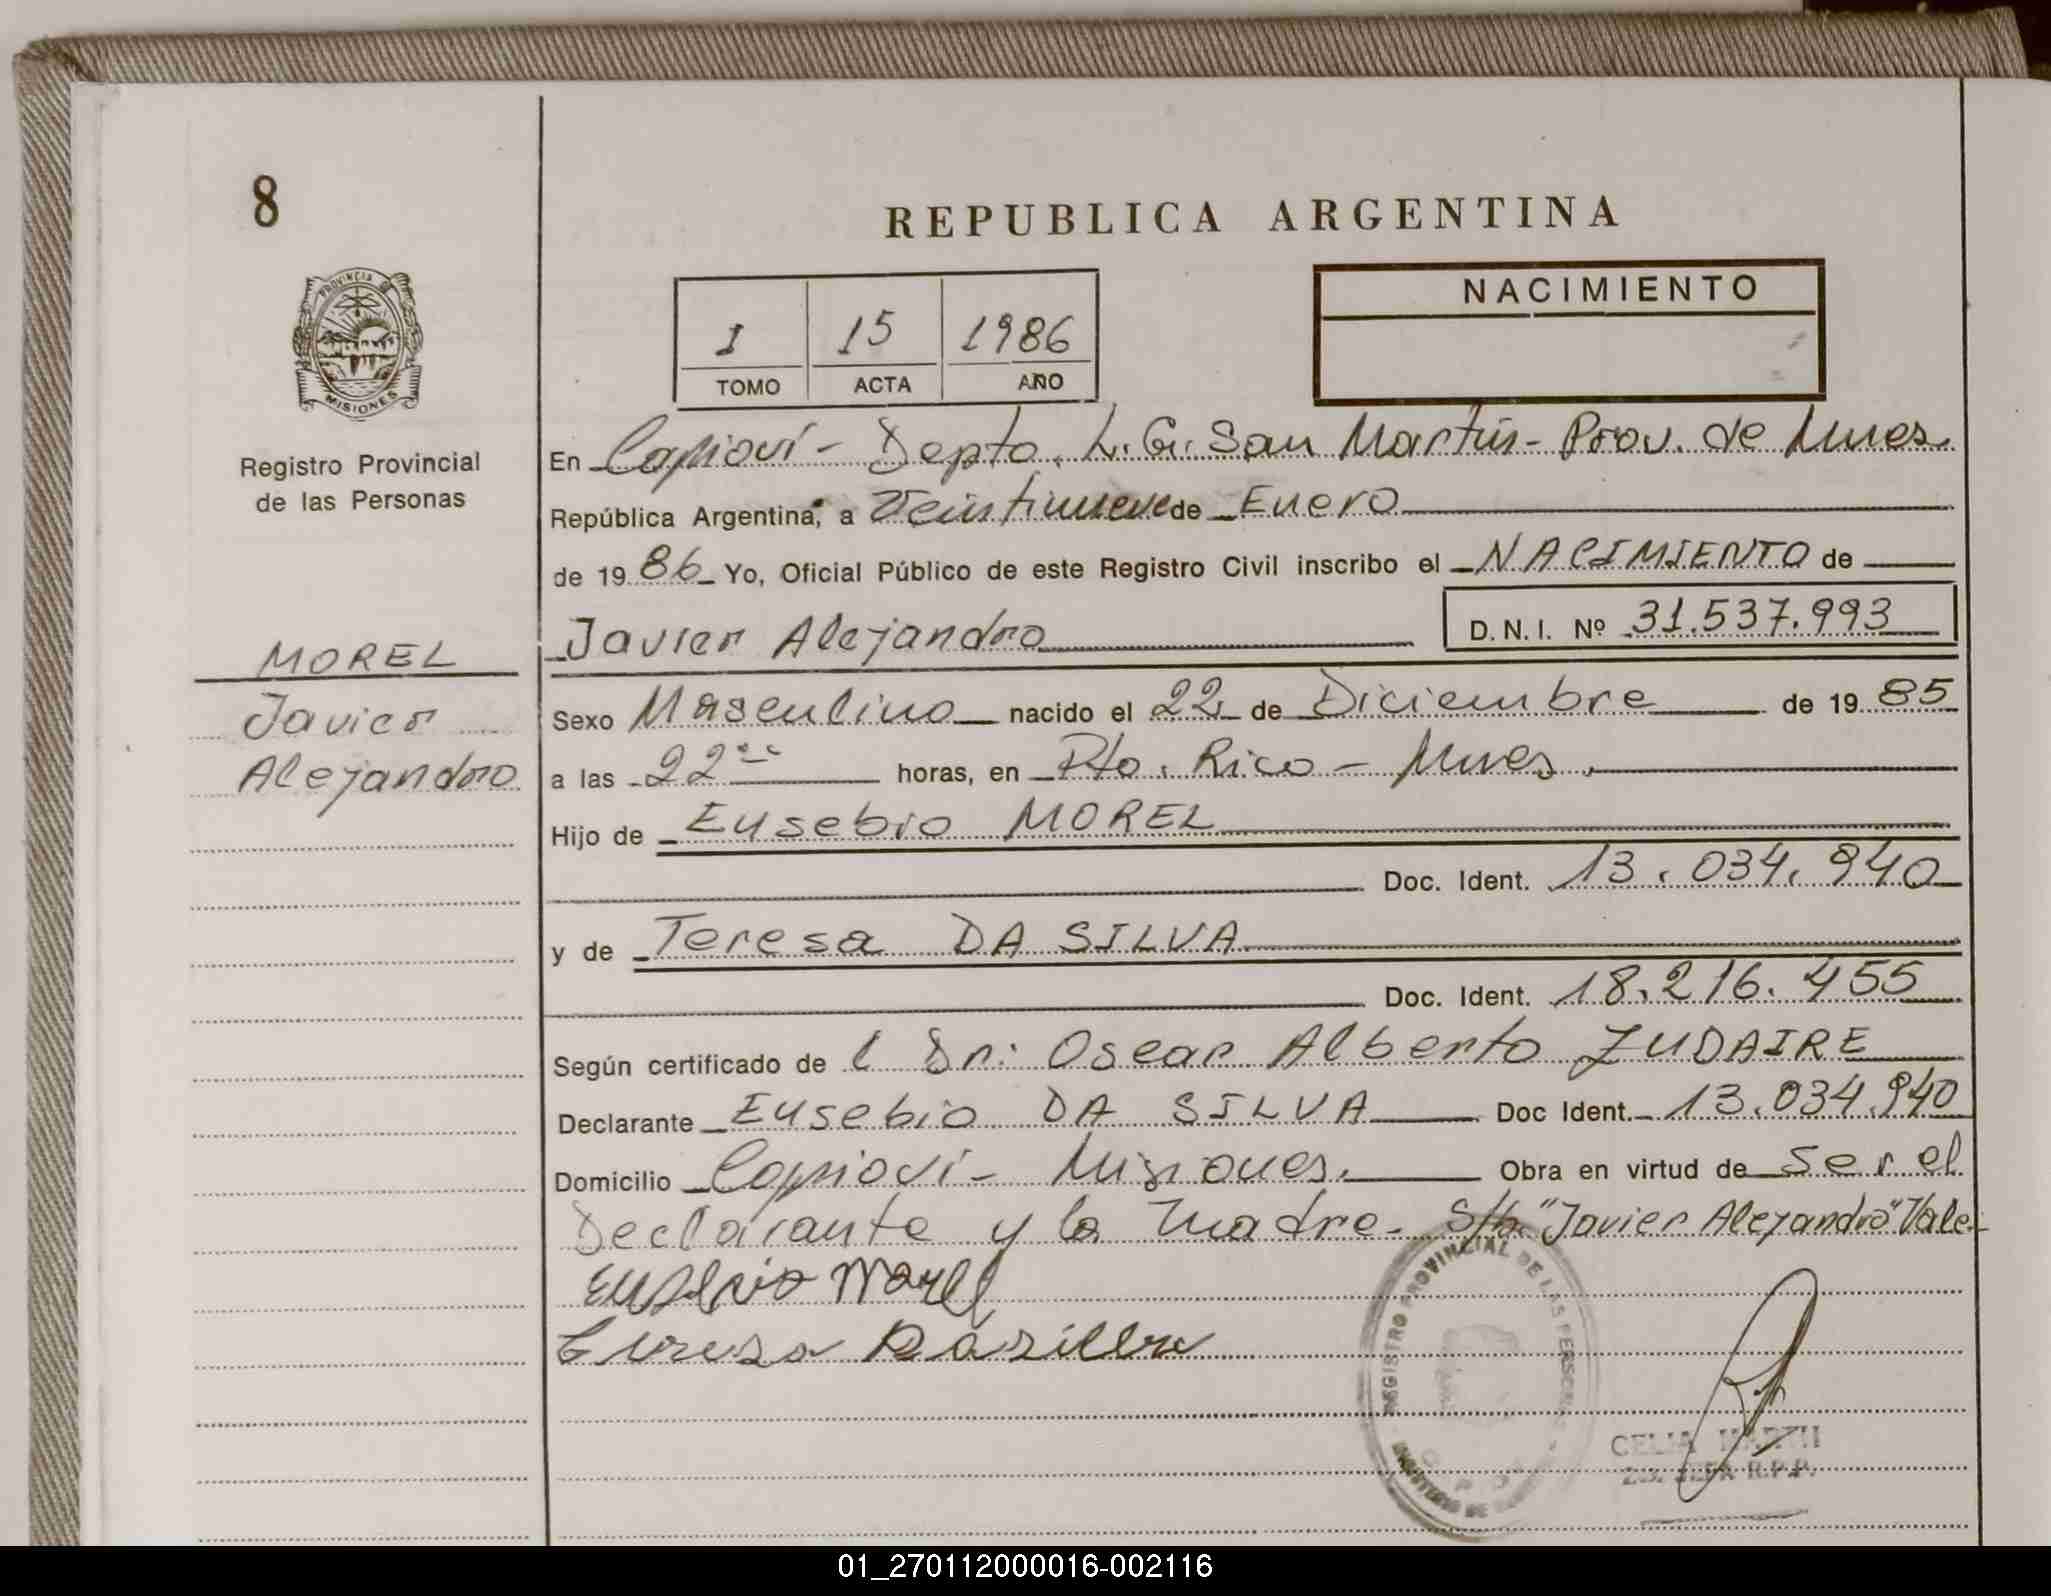 8
REPUBLICA ARGENTINA
PROVINCIA DE
MISIONES
Registro Provincial
de las Personas
I 15 1986
TOMO ACTA AÑO
NACIMIENTO
En Capioví - Depto. L. G. San Martín - Prov. de Mnes.
República Argentina, a Veintinueve de Enero
de 1986 Yo, Oficial Público de este Registro Civil inscribo el NACIMIENTO de
Javier Alejandro D.N.I. Nº 31.537.993
MOREL
Javier
Alejandro
Sexo Masculino nacido el 22 de Diciembre de 1985
a las 22 horas, en Pto. Rico - Mnes.
Hijo de Eusebio MOREL
Doc. Ident. 13.034.940
y de Teresa DA SILVA
Doc. Ident. 18.216.455
Según certificado de l Dr: Oscar Alberto ZUDAIRE
Declarante Eusebio DA SILVA Doc Ident. 13.034.940
Domicilio Capioví - Misiones. Obra en virtud de ser el
Declarante y la madre - S/b. "Javier Alejandro" Vale-
Eusebio Morel
Teresa Dasilva
REGISTRO PROVINCIAL DE LAS PERSONAS
MINISTERIO DE
CELIA
JEFA R.P.P.
01_270112000016-002116